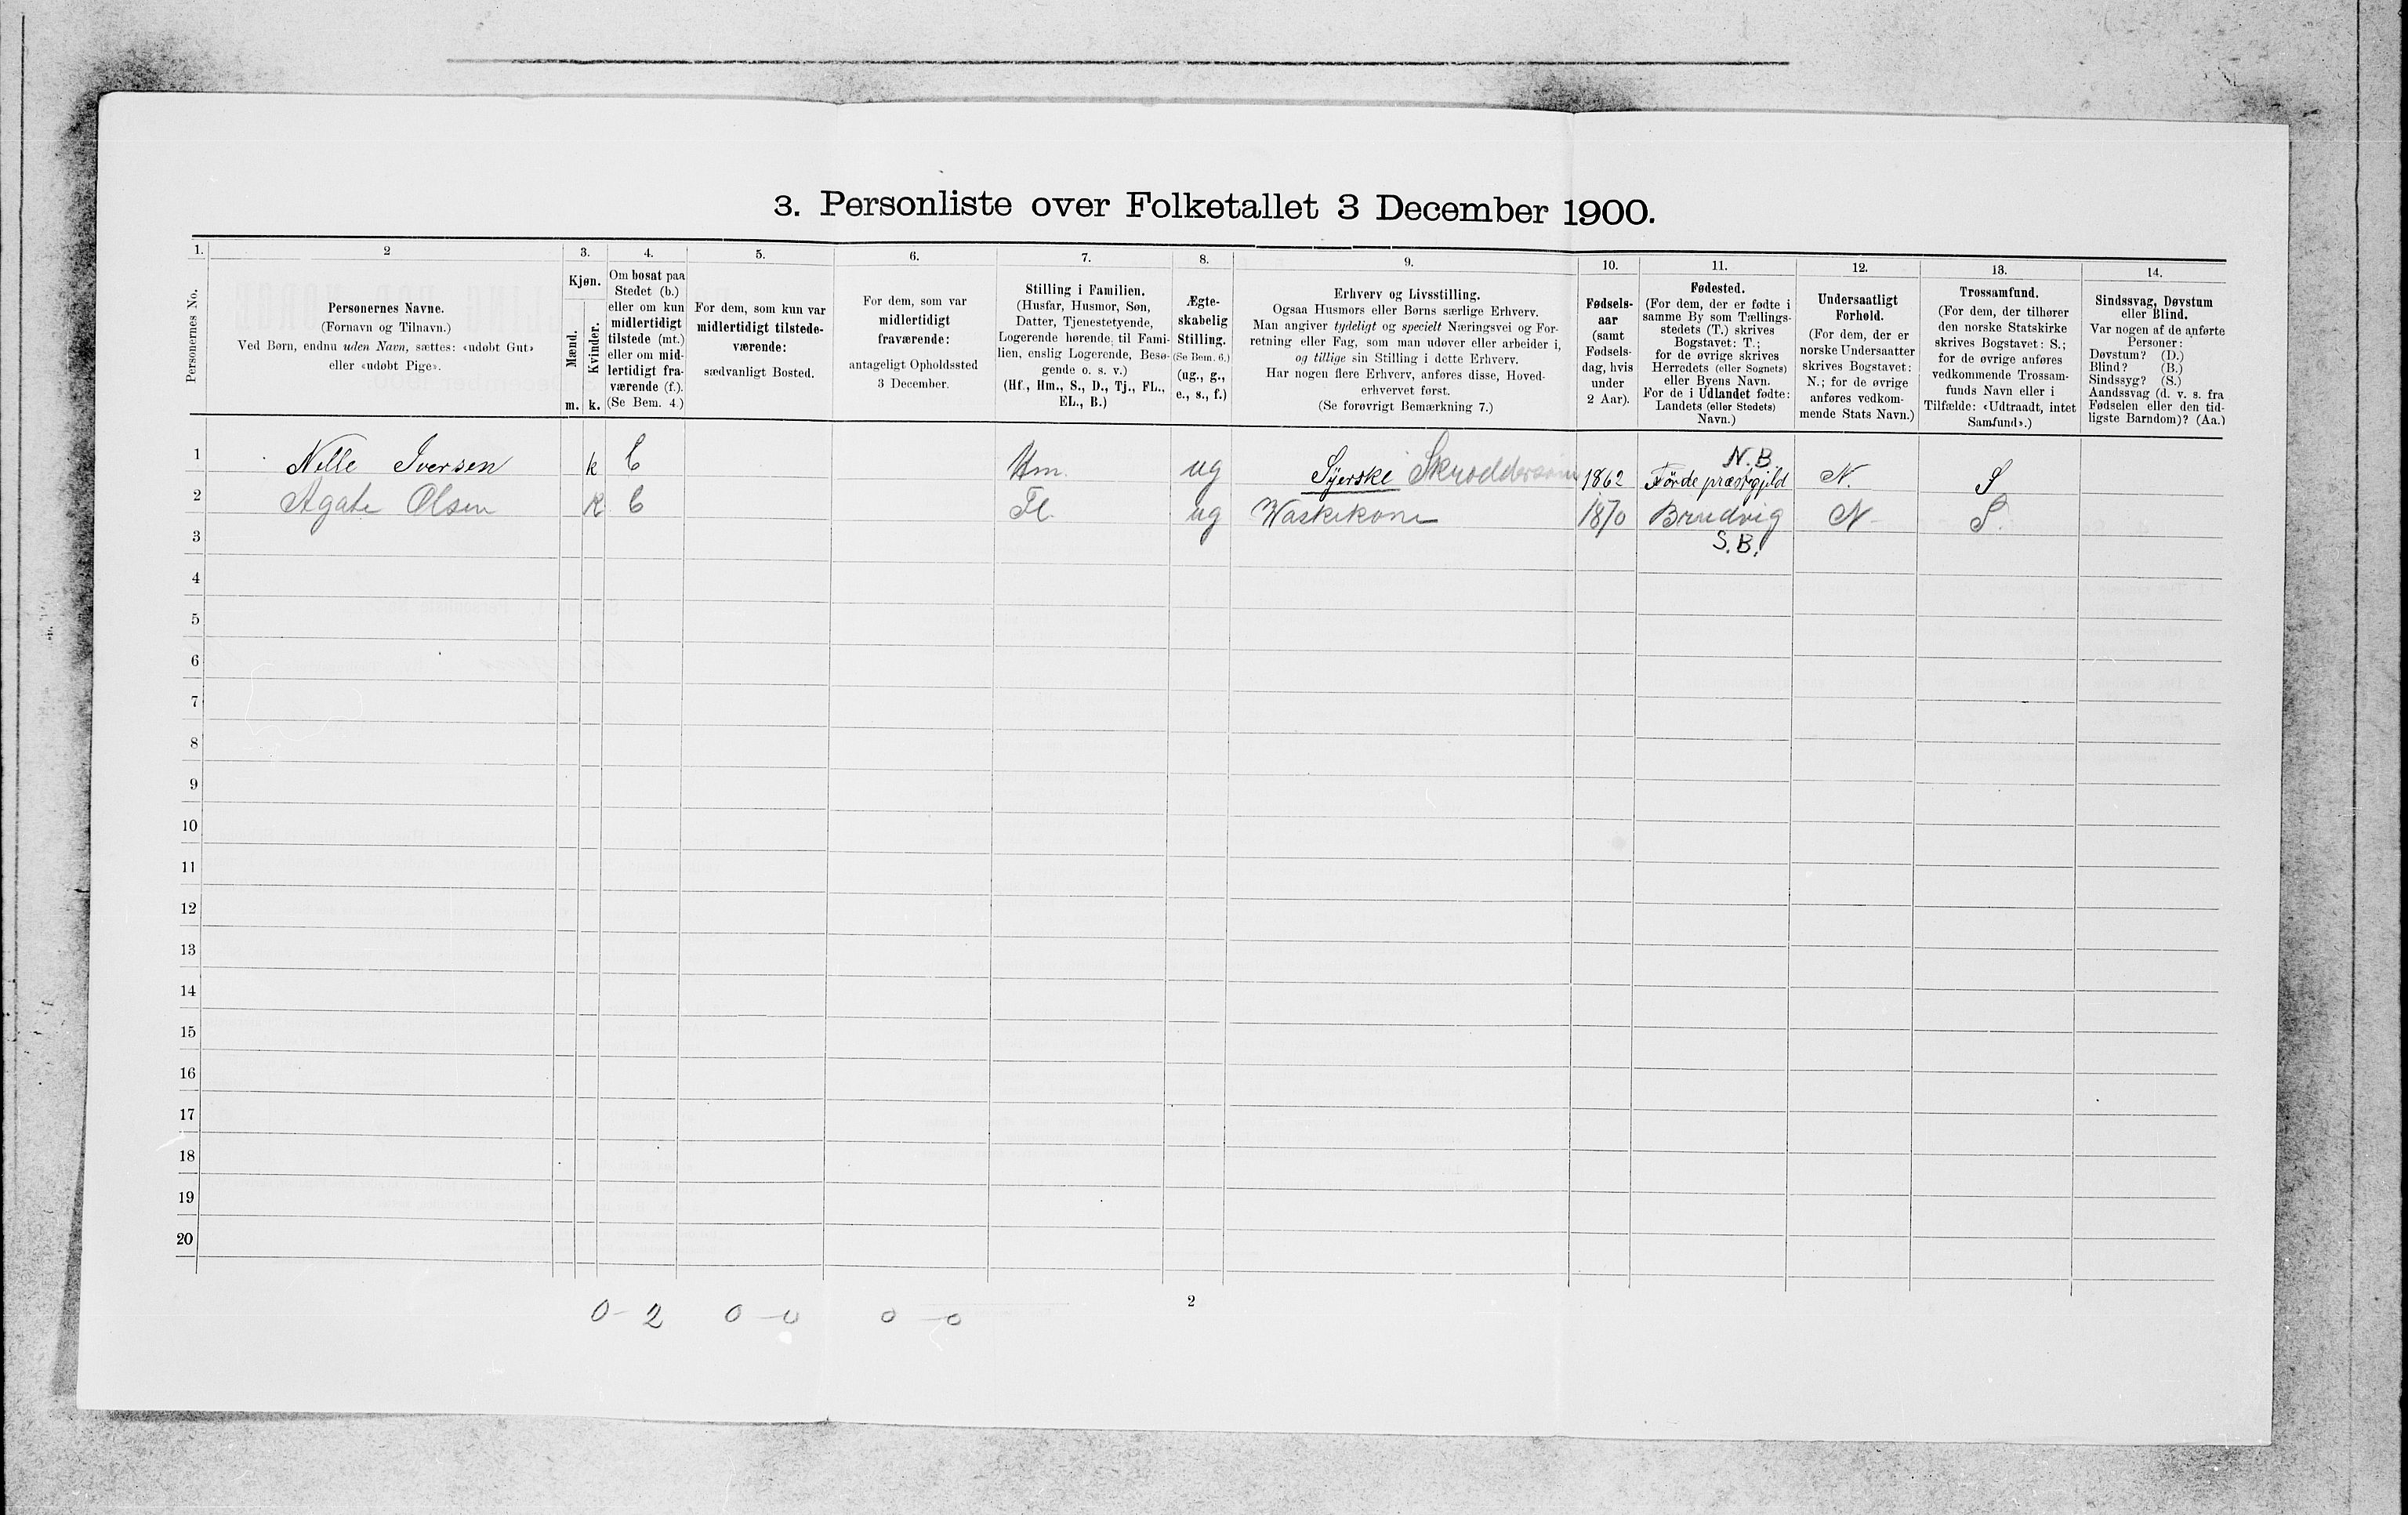 3. Personliste over Folketallet 3 December 1900.
1. 2 3. 4. 5. 6. 7. 8. 9. 10. 11. 12. 13. 14.
Personernes No.
Personernes Navne.
(Fornavn og Tilnavn.)
Ved Børn, endnu uden Navn, sættes: «udøbt Gut»
eller «udøbt Pige».
Kjøn.
Mænd.
Kvinder.
m. k.
Om bosat paa
Stedet (b.)
eller om kun
midlertidigt
tilstede (mt.)
eller om mid-
lertidigt fra-
værende (f.).
(Se Bem. 4.)
For dem, som kun var
midlertidigt tilstede-
værende:
sædvanligt Bosted.
For dem, som var
midlertidigt
fraværende:
antageligt Opholdssted
3 December.
Stilling i Familien.
(Husfar, Husmor, Søn,
Datter, Tjenestetyende,
Logerende hørende til Fami-
lien, enslig Logerende, Besø-
gende o. s. v.)
(Hf., Hm., S., D., Tj., FL.,
EL., B.)
Ægte-
skabelig
Stilling.
(Se Bem. 6.)
(ug., g.,
e., s., f.)
Erhverv og Livsstilling.
Ogsaa Husmors eller Børns særlige Erhverv.
Man angiver tydeligt og specielt Næringsvei og For-
retning eller Fag, som man udøver eller arbeider i,
og tillige sin Stilling i dette Erhverv.
Har nogen flere Erhverv, anføres disse, Hoved-
erhvervet først.
(Se forøvrigt Bemærkning 7.)
Fødsels-
aar
(samt
Fødsels-
dag, hvis
under
2 Aar).
Fødested.
(For dem, der er fødte i
samme By som Tællings-
stedets (T.) skrives
Bogstavet: T.;
for de øvrige skrives
Herredets (eller Sognets)
eller Byens Navn.
For de i Udlandet fødte:
Landets (eller Stedets)
Navn.)
Undersaatligt
Forhold.
(For dem, der er
norske Undersaatter
skrives Bogstavet:
N.; for de øvrige
anføres vedkom-
mende Stats Navn.)
Trossamfund.
(For dem, der tilhører
den norske Statskirke
skrives Bogstavet: S.;
for de øvrige anføres
vedkommende Trossam-
funds Navn eller i
Tilfælde: «Udtraadt, intet
Samfund».)
Sindssvag, Døvstum
eller Blind.
Var nogen af de anførte
Personer:
Døvstum? (D.)
Blind? (B.)
Sindssyg? (S.)
Aandssvag (d. v. s. fra
Fødselen eller den tid-
ligste Barndom)? (Aa.)
N.B
1 Nille Iversen k b Hm. ug Syerske Skræddersøm 1862 Førde præstegjeld N. S
2 Agate Olsen k b Fl. ug Waskekone 1870 Brudvig N S.
S.B.
3
4
5
6
7
8
9
10
11
12
13
14
15
16
17
18
19
20
0-2 0-0 0-0
2